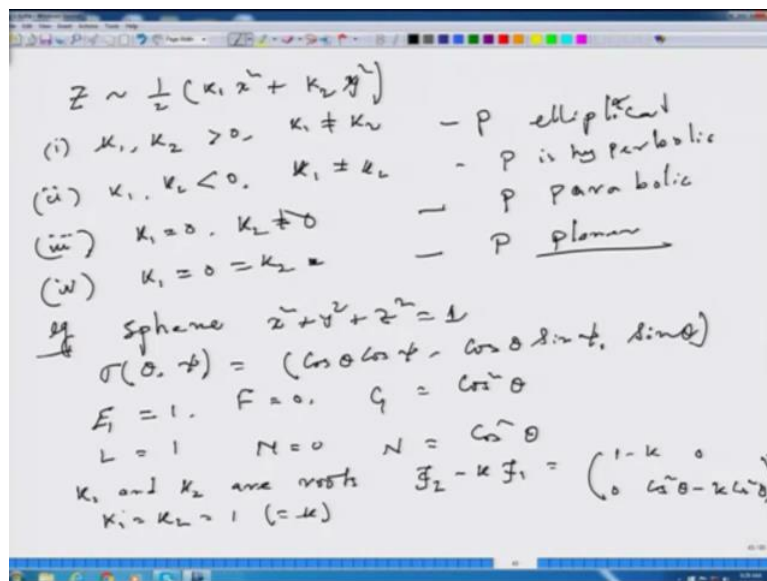 Z ~ 1/2 (κ₁ x² + κ₂ y²)
(i) κ₁, κ₂ > 0, κ₁ ≠ κ₂ - P elliptical
(ii) κ₁, κ₂ < 0, κ₁ ≠ κ₂ - P is hyperbolic
(iii) κ₁ = 0, κ₂ ≠ 0 - P parabolic
(iv) κ₁ = 0 = κ₂ - P planar
eg sphere x² + y² + z² = 1
σ(θ, ψ) = (cos θ cos ψ, cos θ sin ψ, sin θ)
E₁ = 1, F = 0, G = cos² θ
L = 1 M = 0 N = cos² θ
κ₁ and κ₂ are roots F₂ - κ F₁ = (1 - κ 0
0 cos² θ - κ cos² θ)
κ₁ = κ₂ = 1 (= κ)